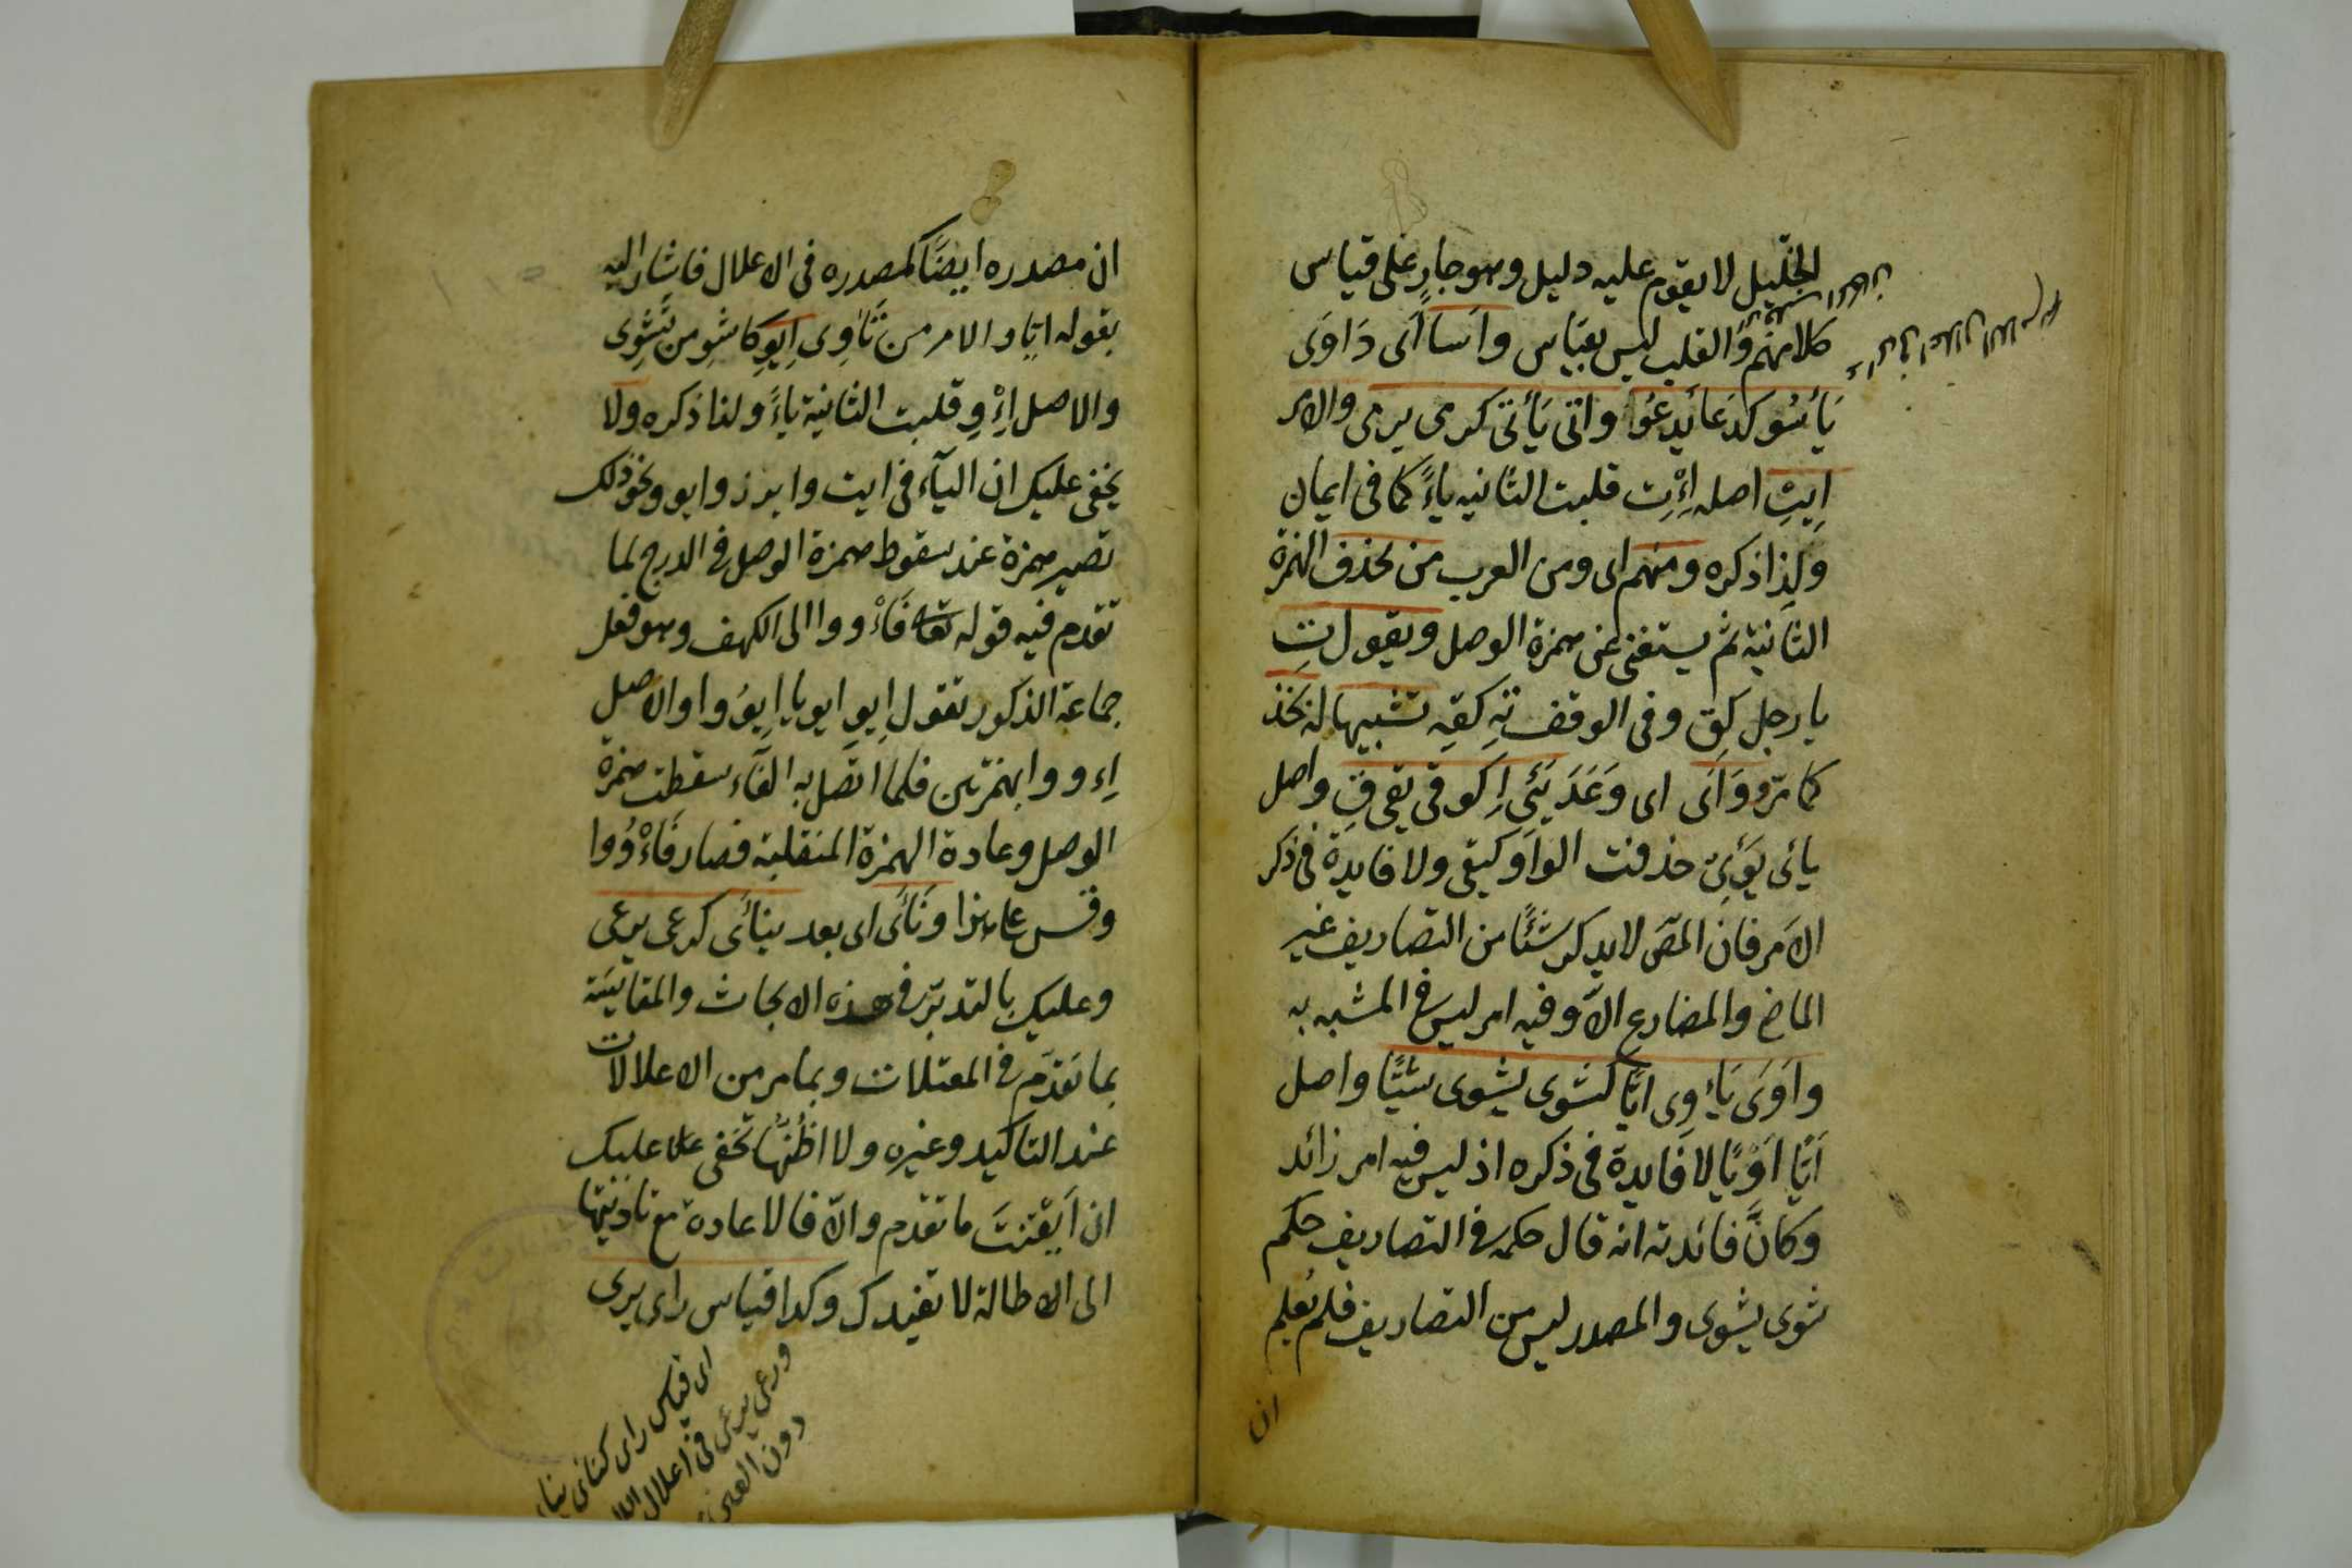 الخليل لا يقوم عليه دليل وهو جارٍ على قياس
كلامهم والقلب ليس بقياس واسا اى داوى
يأسو كدعا يدعوا واتى يأتى كرمى يرمى والامر
ايتِ اصله اِءْتِ قلبت الثانيه ياءً كما فى ايمان
ولذا ذكره ومنهم اى ومن العرب من يحذف الهمزة
الثانية ثم يستغنى عن همزة الوصل ويقول تِ
يا رجل كقِ وفى الوقف تِهِ كقِه تشبيها له بخذ
كما مرّ ووَأَى اى وَعَدَ يَئى اِ كوقى يقى قِ واصل
يائى يَوْئى حذفت الواو كيقى ولا فايدة فى ذكر
الامر فان المصَ لا يدكر شئًا من التصاريف غير
الماضى والمضارع الاّ وفيه امر ليس فى المشبه به
واَوَى يَاءوِى ايّا كشوى يشوى شيّا واصل
اَيّا اَوْيًا لا فايدة فى ذكره اذ ليس فيه امر زائد
وكانّ فائدته انه قال حكمه فى التصاريف حكم
شوى يشوى والمصدر ليس من التصاريف فلم يُعلم
ان
ان مصدره ايضًا كمصدره فى الاعلال فاشار اليه
بقوله ايّا والامر من تَأوِى اِيوِ كاشوِ من تَشوِى
والاصل اِءْوِ قلبت الثانية ياءً ولذا ذكره ولا
يخفى عليك ان اليآء فى ايت وايرز وايو ونحو ذلك
تصير همزة عند سقوط همزة الوصل فى الدرج لما
تقدم فيه قوله تعالى فَأْووا الى الكهف وهو فعل
جماعة الذكور تقول اِيوِ ايويا اِيوُوا والاصل
اِءووا بهمزتين فلما اتّصل به الفآء سقطت همزة
الوصل وعادة الهمزة المنقلبة فصار فَاْوُوا
وقس على هذا ونَأَى اى بعد ينأى كرعى يرعى
وعليك بالتدبّر فى هذه الابحاث والمقايسَة
بما تقدّم فى المعتلات وبما مر من الاعلالات
عند التاكيد وغيره ولا اظنّها تخفى عليك
ان اَيقنتَ ما تقدم والاّ فالاعادة مع تاديتها
الى الاطالة لا تفيدك وكدا قياس راى يرى
اى قياس راى كنأى ينأى
ورعى يرعى فى اعلال
دون العين